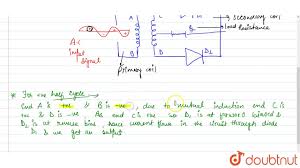 Secondary coil
Load Resistance
A.C
input
signal
D₂
B
primary coil
* For one half cycle →
End A is +ve & B is -ve, due to mutual induction end C is
+ve & D is -ve. As end C is +ve so D₁ is at forward biased &
D₂ is at reverse bias hence current flows in the circuit through diode
D₁ & we get an output